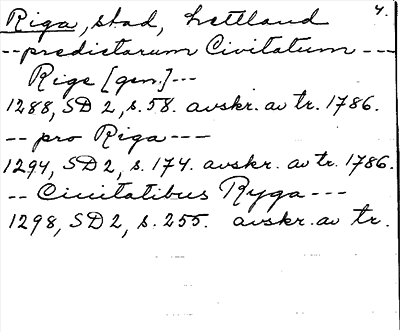 Riga, stad, Lettland 4.
-- predictarum Civitatum ---
Rige [gen.] ---
1288, SD 2, s. 58. avskr. av tr. 1786.
-- pro Riga ---
1294, SD 2, s. 174. avskr. av tr. 1786.
-- Ciuitatibus Ryga ---
1298, SD 2, s. 255. avskr. av tr.